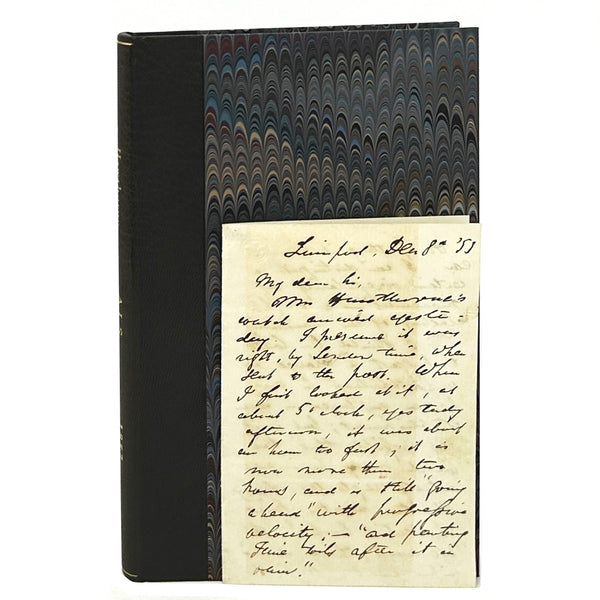 Liverpool, Dec 8th '53
My dear Sir,
Mrs Hawthorne's
watch arrived yester-
day. I presume it was
right, by London time, when
sent to the post. When
I first looked at it, at
about 5 o'clock, yesterday
afternoon, it was about
an hour too fast; it is
now more than two
hours, and is still "going
ahead" with progressive
velocity;— "and panting
Time toils after it in
vain."
A.L.S.